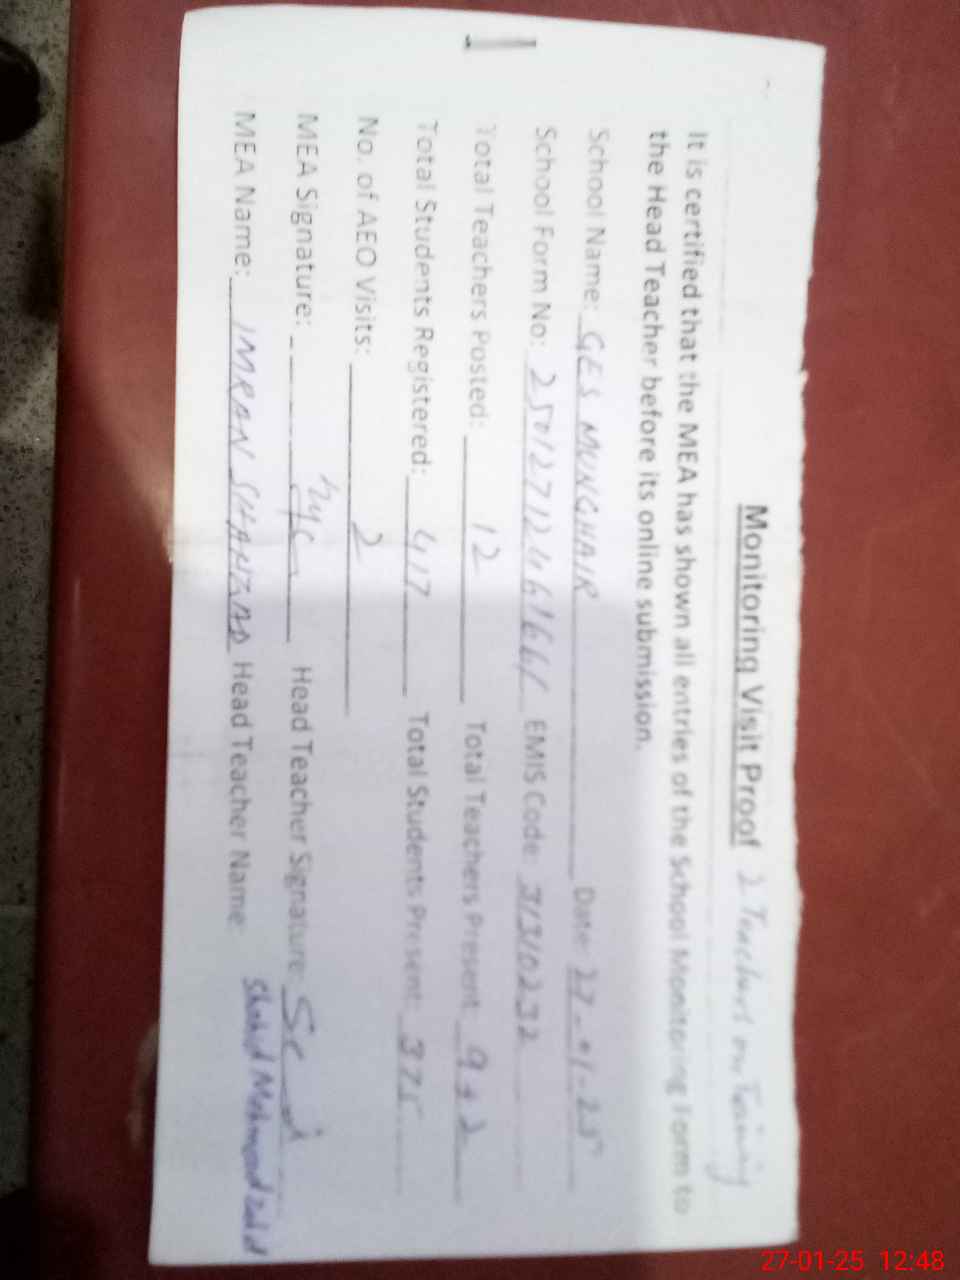 Monitoring Visit Proof 2 Teachers on Training
It is certified that the MEA has shown all entries of the School Monitoring Form to
the Head Teacher before its online submission.
School Name: GES MUNGHAIR Date: 27-01-25
School Form No: EMIS Code: 31310232
Total Teachers Posted: 12 Total Teachers Present: 9+2
Total Students Registered: 417 Total Students Present: 375
No. of AEO Visits: 2
MEA Signature: Head Teacher Signature:
MEA Name: IMRAN SHAHZAD Head Teacher Name: Shahid Mehmood Zahid
27-01-25 12:48